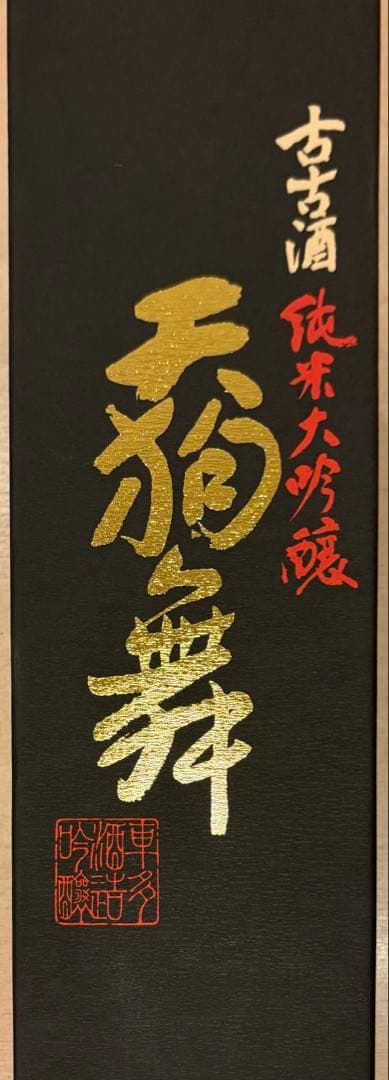 古古酒 純米大吟醸
天狗舞
車多
酒造
吟醸